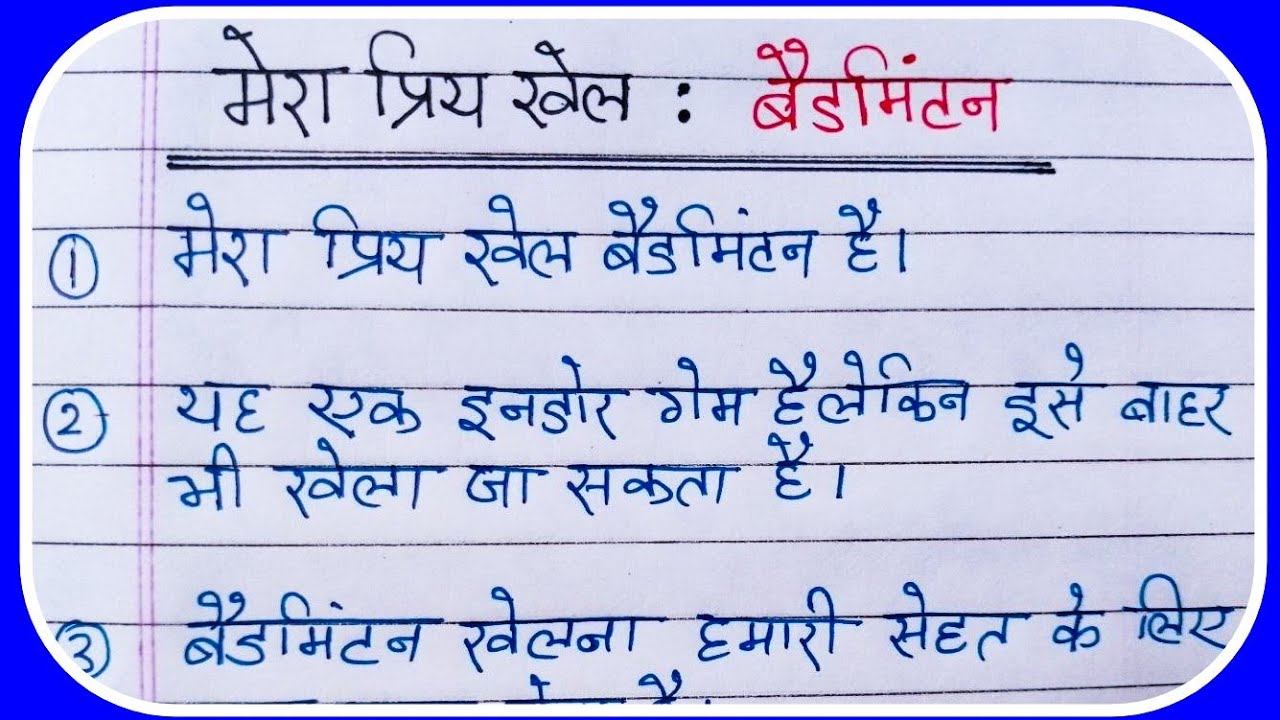 मेरा प्रिय खेल : बैडमिंटन
① मेरा प्रिय खेल बैडमिंटन है।
② यह एक इनडोर गेम है लेकिन इसे बाहर
भी खेला जा सकता है।
③ बैडमिंटन खेलना हमारी सेहत के लिए